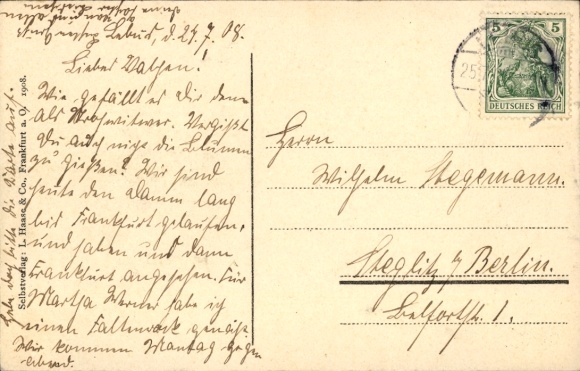 Lebus, d. 24.7.08.
Lieber Vathen!
Wie gefällt es Dir denn
als Strohwitwer. Vergißt
Du auch nicht die Blumen
zu gießen? Wir sind
heute den Damm lang
bis Frankfurt gelaufen,
und haben uns dann
Frankfurt angesehen. Für
Martha Werner habe ich
einen Faltenrock genäht
Wir kommen Montag gegen
Abend.
Hebe doch bitte die Karte auf.
Selbstverlag: L. Haase & Co., Frankfurt a. O. 1908.
5 5
DEUTSCHES REICH
25
Herrn
Wilhelm Stegemann.
Steglitz b/ Berlin.
Belfortstr. 1.